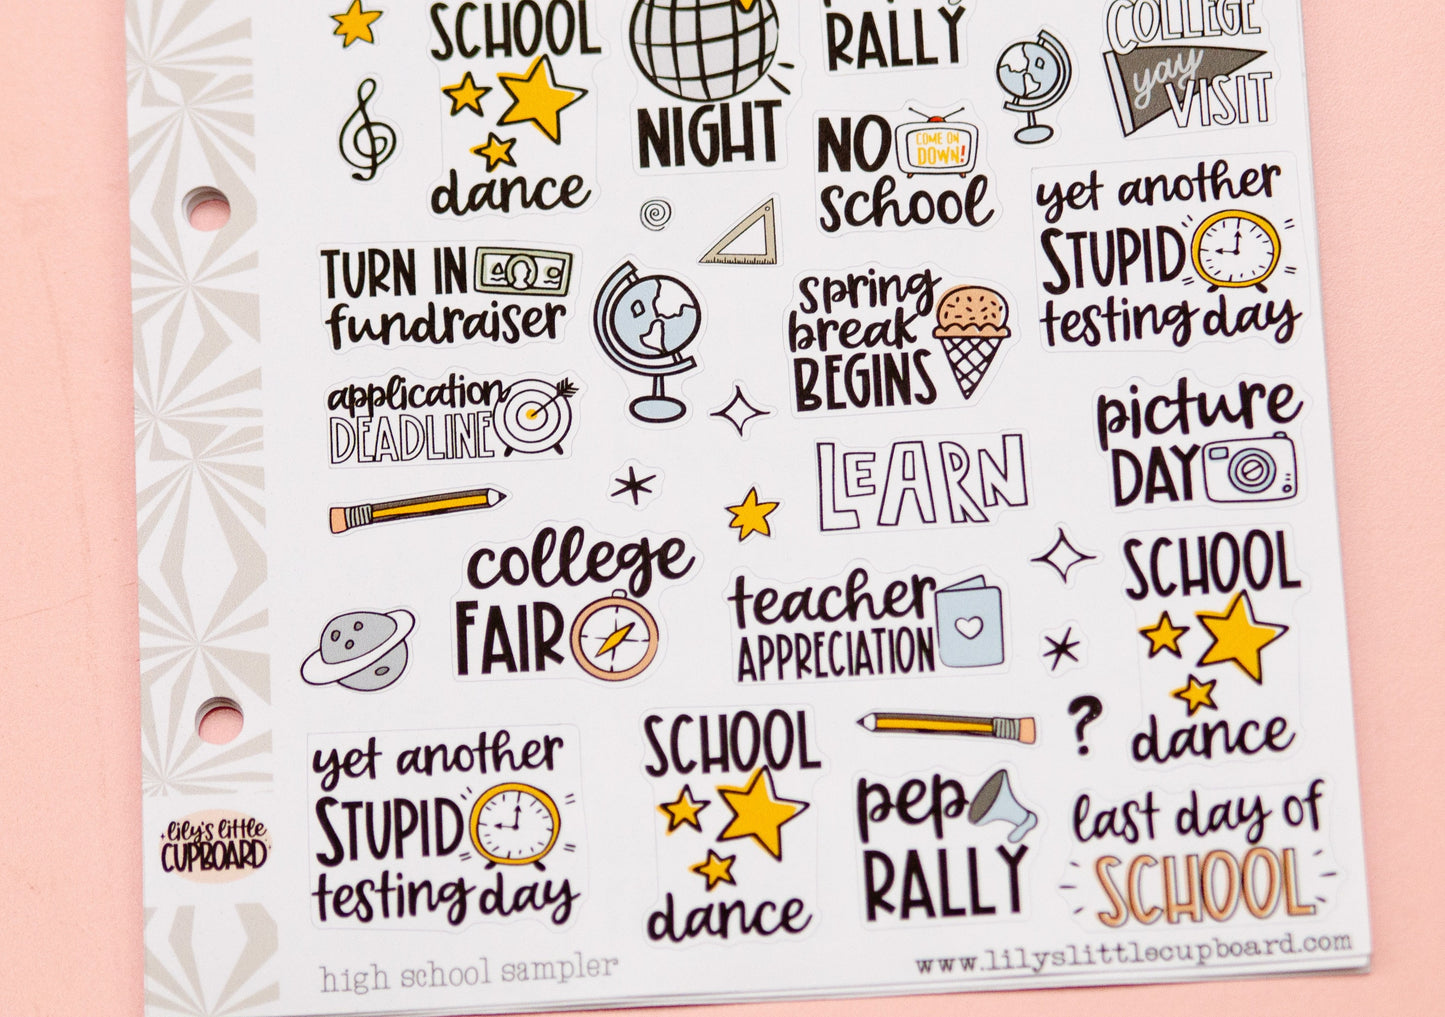 SCHOOL
dance
NIGHT
RALLY
COLLEGE
yay
VISIT
NO
COME ON
DOWN!
school
yet another
STUPID
testing day
TURN IN
fundraiser
spring
break
BEGINS
application
DEADLINE
picture
DAY
LEARN
college
FAIR
teacher
APPRECIATION
SCHOOL
dance
?
yet another
STUPID
testing day
SCHOOL
dance
pep
RALLY
last day of
SCHOOL
lily's little
CUPBOARD
high school sampler
www.lilyslittlecupboard.com